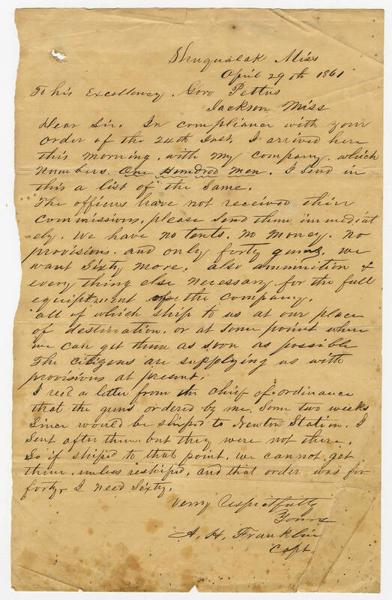 Shuqualak Miss
April 29th 1861
To his Excellency, Gov Pettus
Jackson Miss
Dear Sir. In compliance with your
order of the 24th Inst, I arrived here
this morning, with my company, which
numbers, One Hundred Men. I send in
this a list of the same.
The officers have not received their
commissions, please send them immediat
-ely. We have no tents. No Money. No
provisions, and only forty guns, we
want Sixty more, also ammunition &
every thing else necessary for the full
equiptment of the Company.
all of which ship to us at our place
of destination, or at some point where
we can get them as soon as possible
The Citizens are supplying us with
provisions at present,
I recd a letter from the Chief of ordinance
that the guns ordered by me, Some two weeks
Since would be shiped to Newton Station. I
Sent after them but they were not there.
So if shiped to that point, we cannot get
them, unless reshiped, and that order was for
forty, I need Sixty.
very respectfully
Yours
A. H. Franklin
Capt.